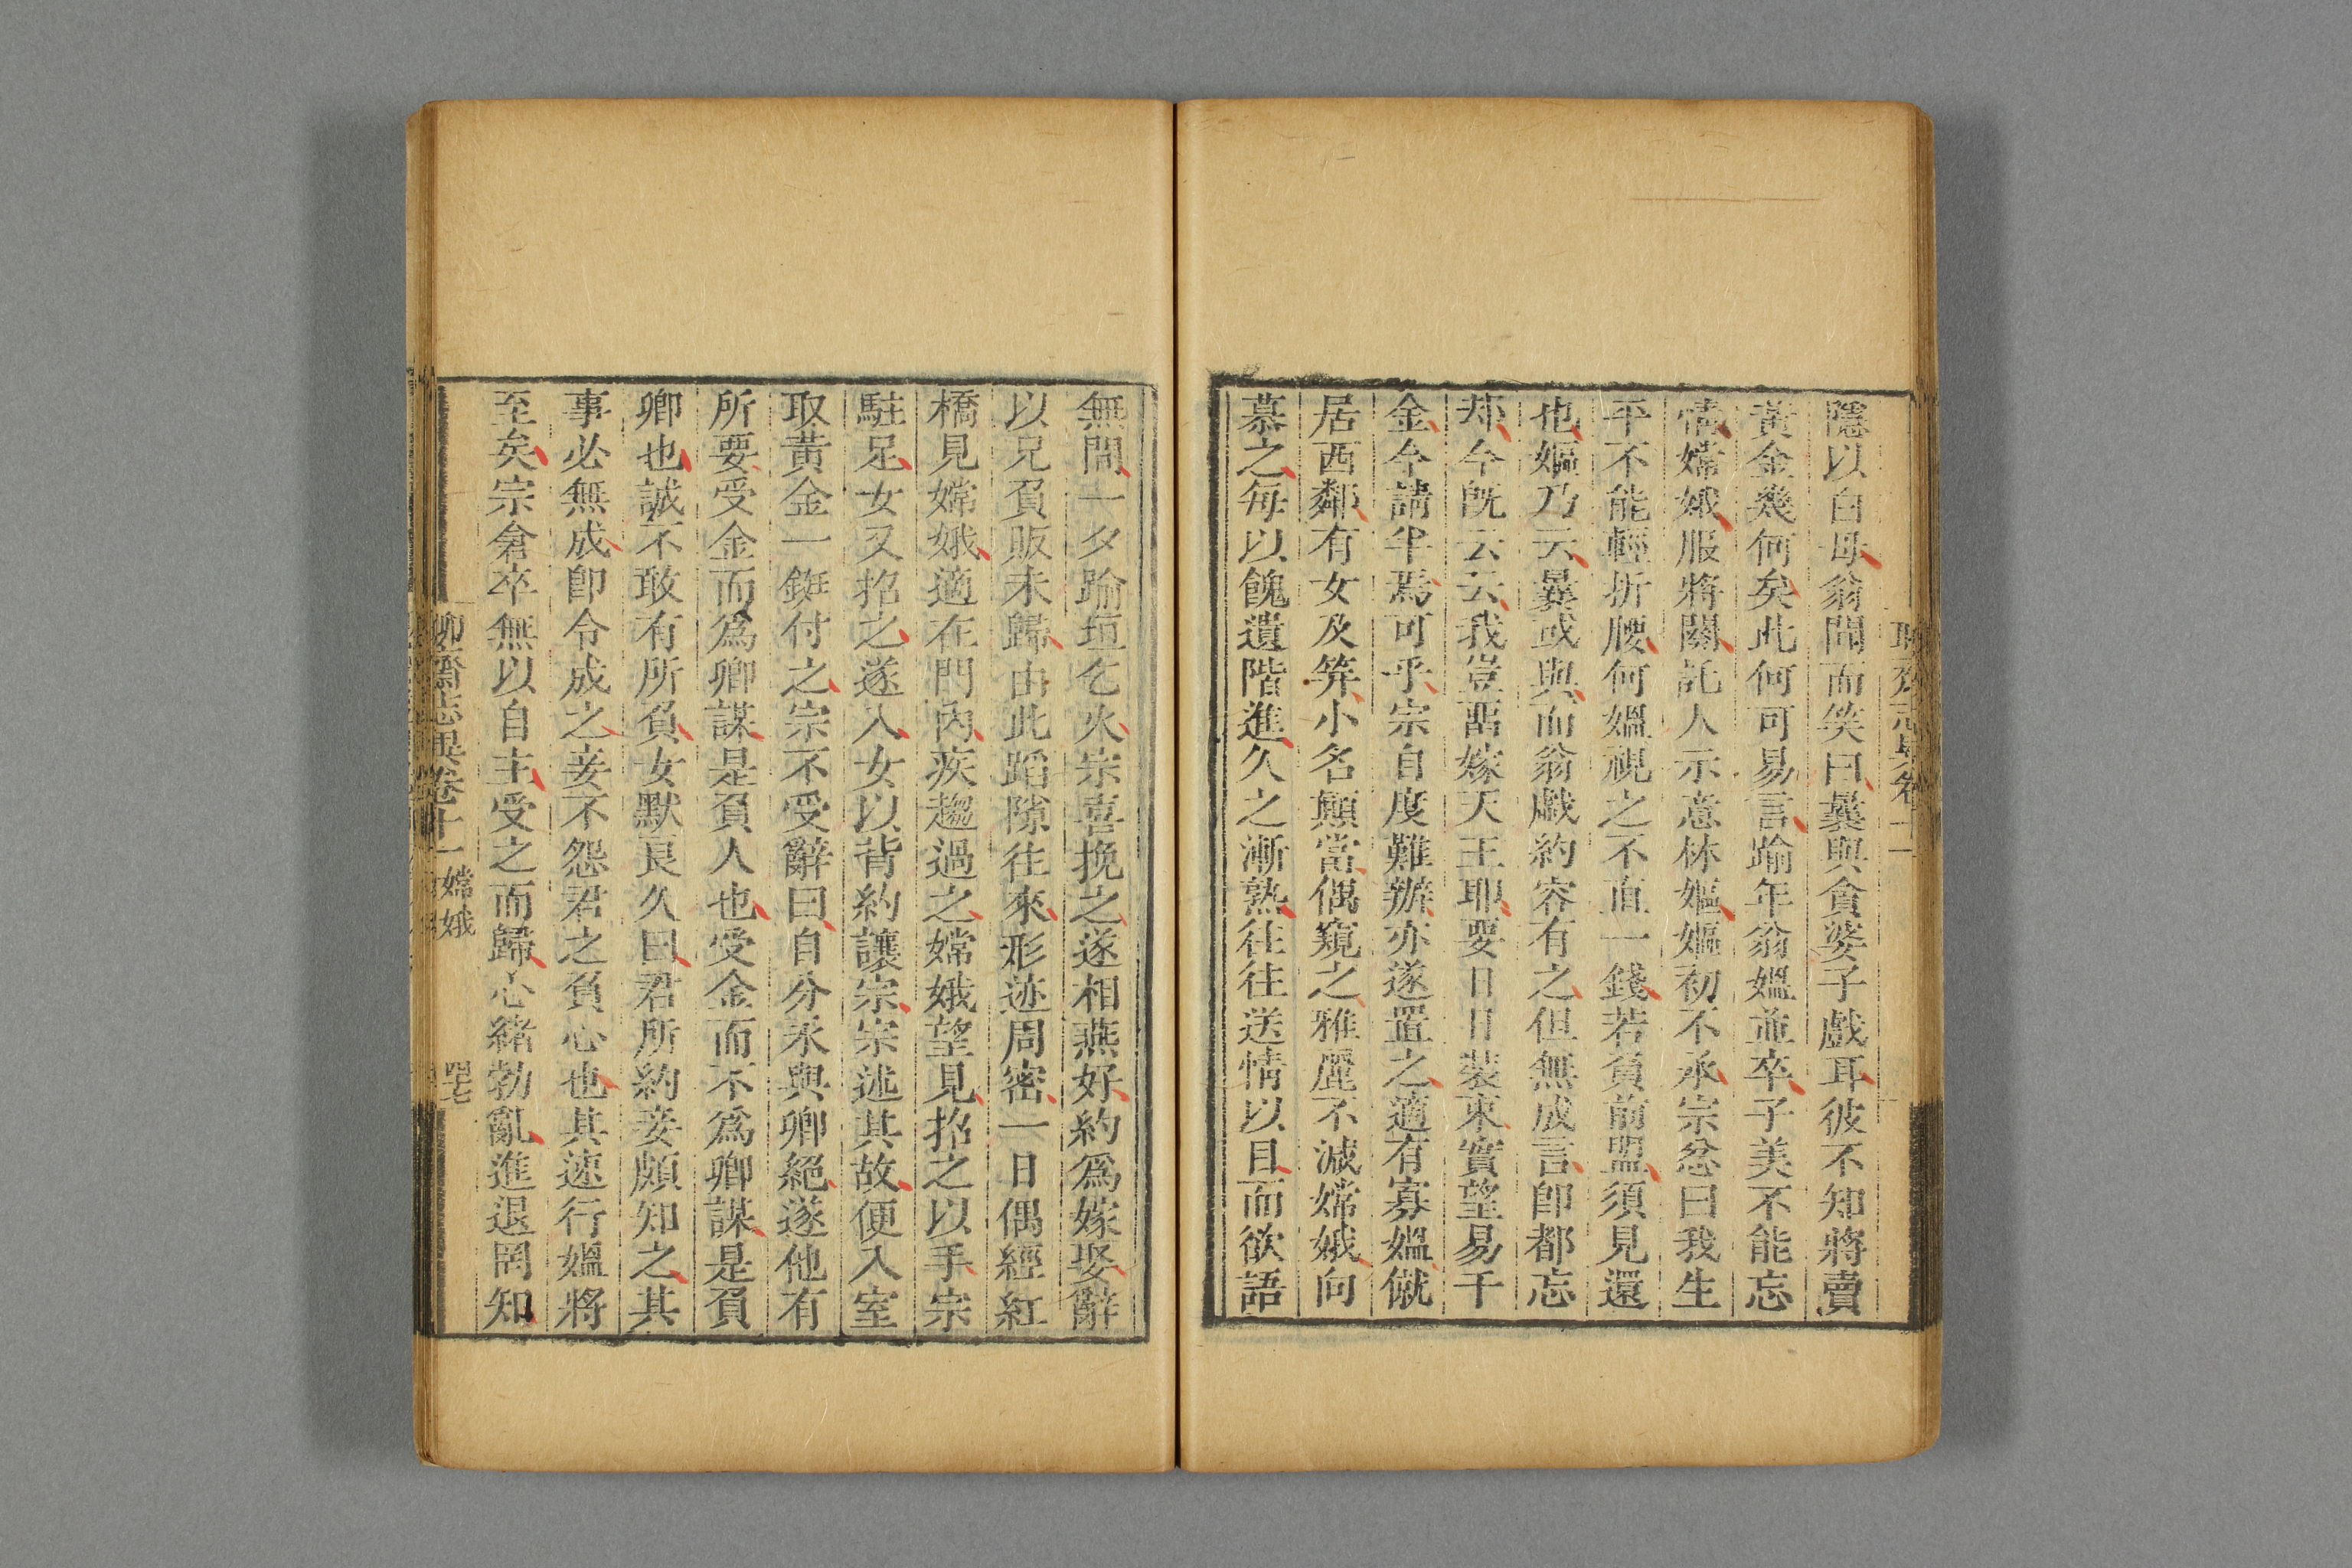 聊齋志異卷十一
隱以白母翁聞而笑曰曩與貪婆子戲耳彼不知將賣
黃金幾何矣此何可易言踰年翁媼並卒子美不能忘
情嫦娥服將闋託人示意林嫗嫗初不承宗忿曰我生
平不能輕折腰何媼視之不直一錢若負前盟須見還
也嫗乃云曩或與而翁戲約容有之但無成言卽都忘
却今旣云云我豈畱嫁天王耶要日日裝束實望易千
金今請半焉可乎宗自度難辦亦遂置之適有寡媼僦
居西鄰有女及笄小名顚當偶窺之雅麗不減嫦娥向
慕之每以餽遺階進久之漸熟往往送情以目而欲語
無間一夕踰垣乞火宗喜挽之遂相燕好約爲嫁娶辭
以兄負販未歸由此蹈隙往來形迹周密一日偶經紅
橋見嫦娥適在門內疾趨過之嫦娥望見招之以手宗
駐足女又招之遂入女以背約讓宗宗述其故便入室
取黃金一鋌付之宗不受辭曰自分永與卿絕遂他有
所要受金而爲卿謀是負人也受金而不爲卿謀是負
卿也誠不敢有所負女默良久曰君所約妾頗知之其
事必無成卽令成之妾不怨君之負心也其速行媼將
至矣宗倉卒無以自主受之而歸心緒勃亂進退罔知
聊齋志異卷十一 嫦娥 四七